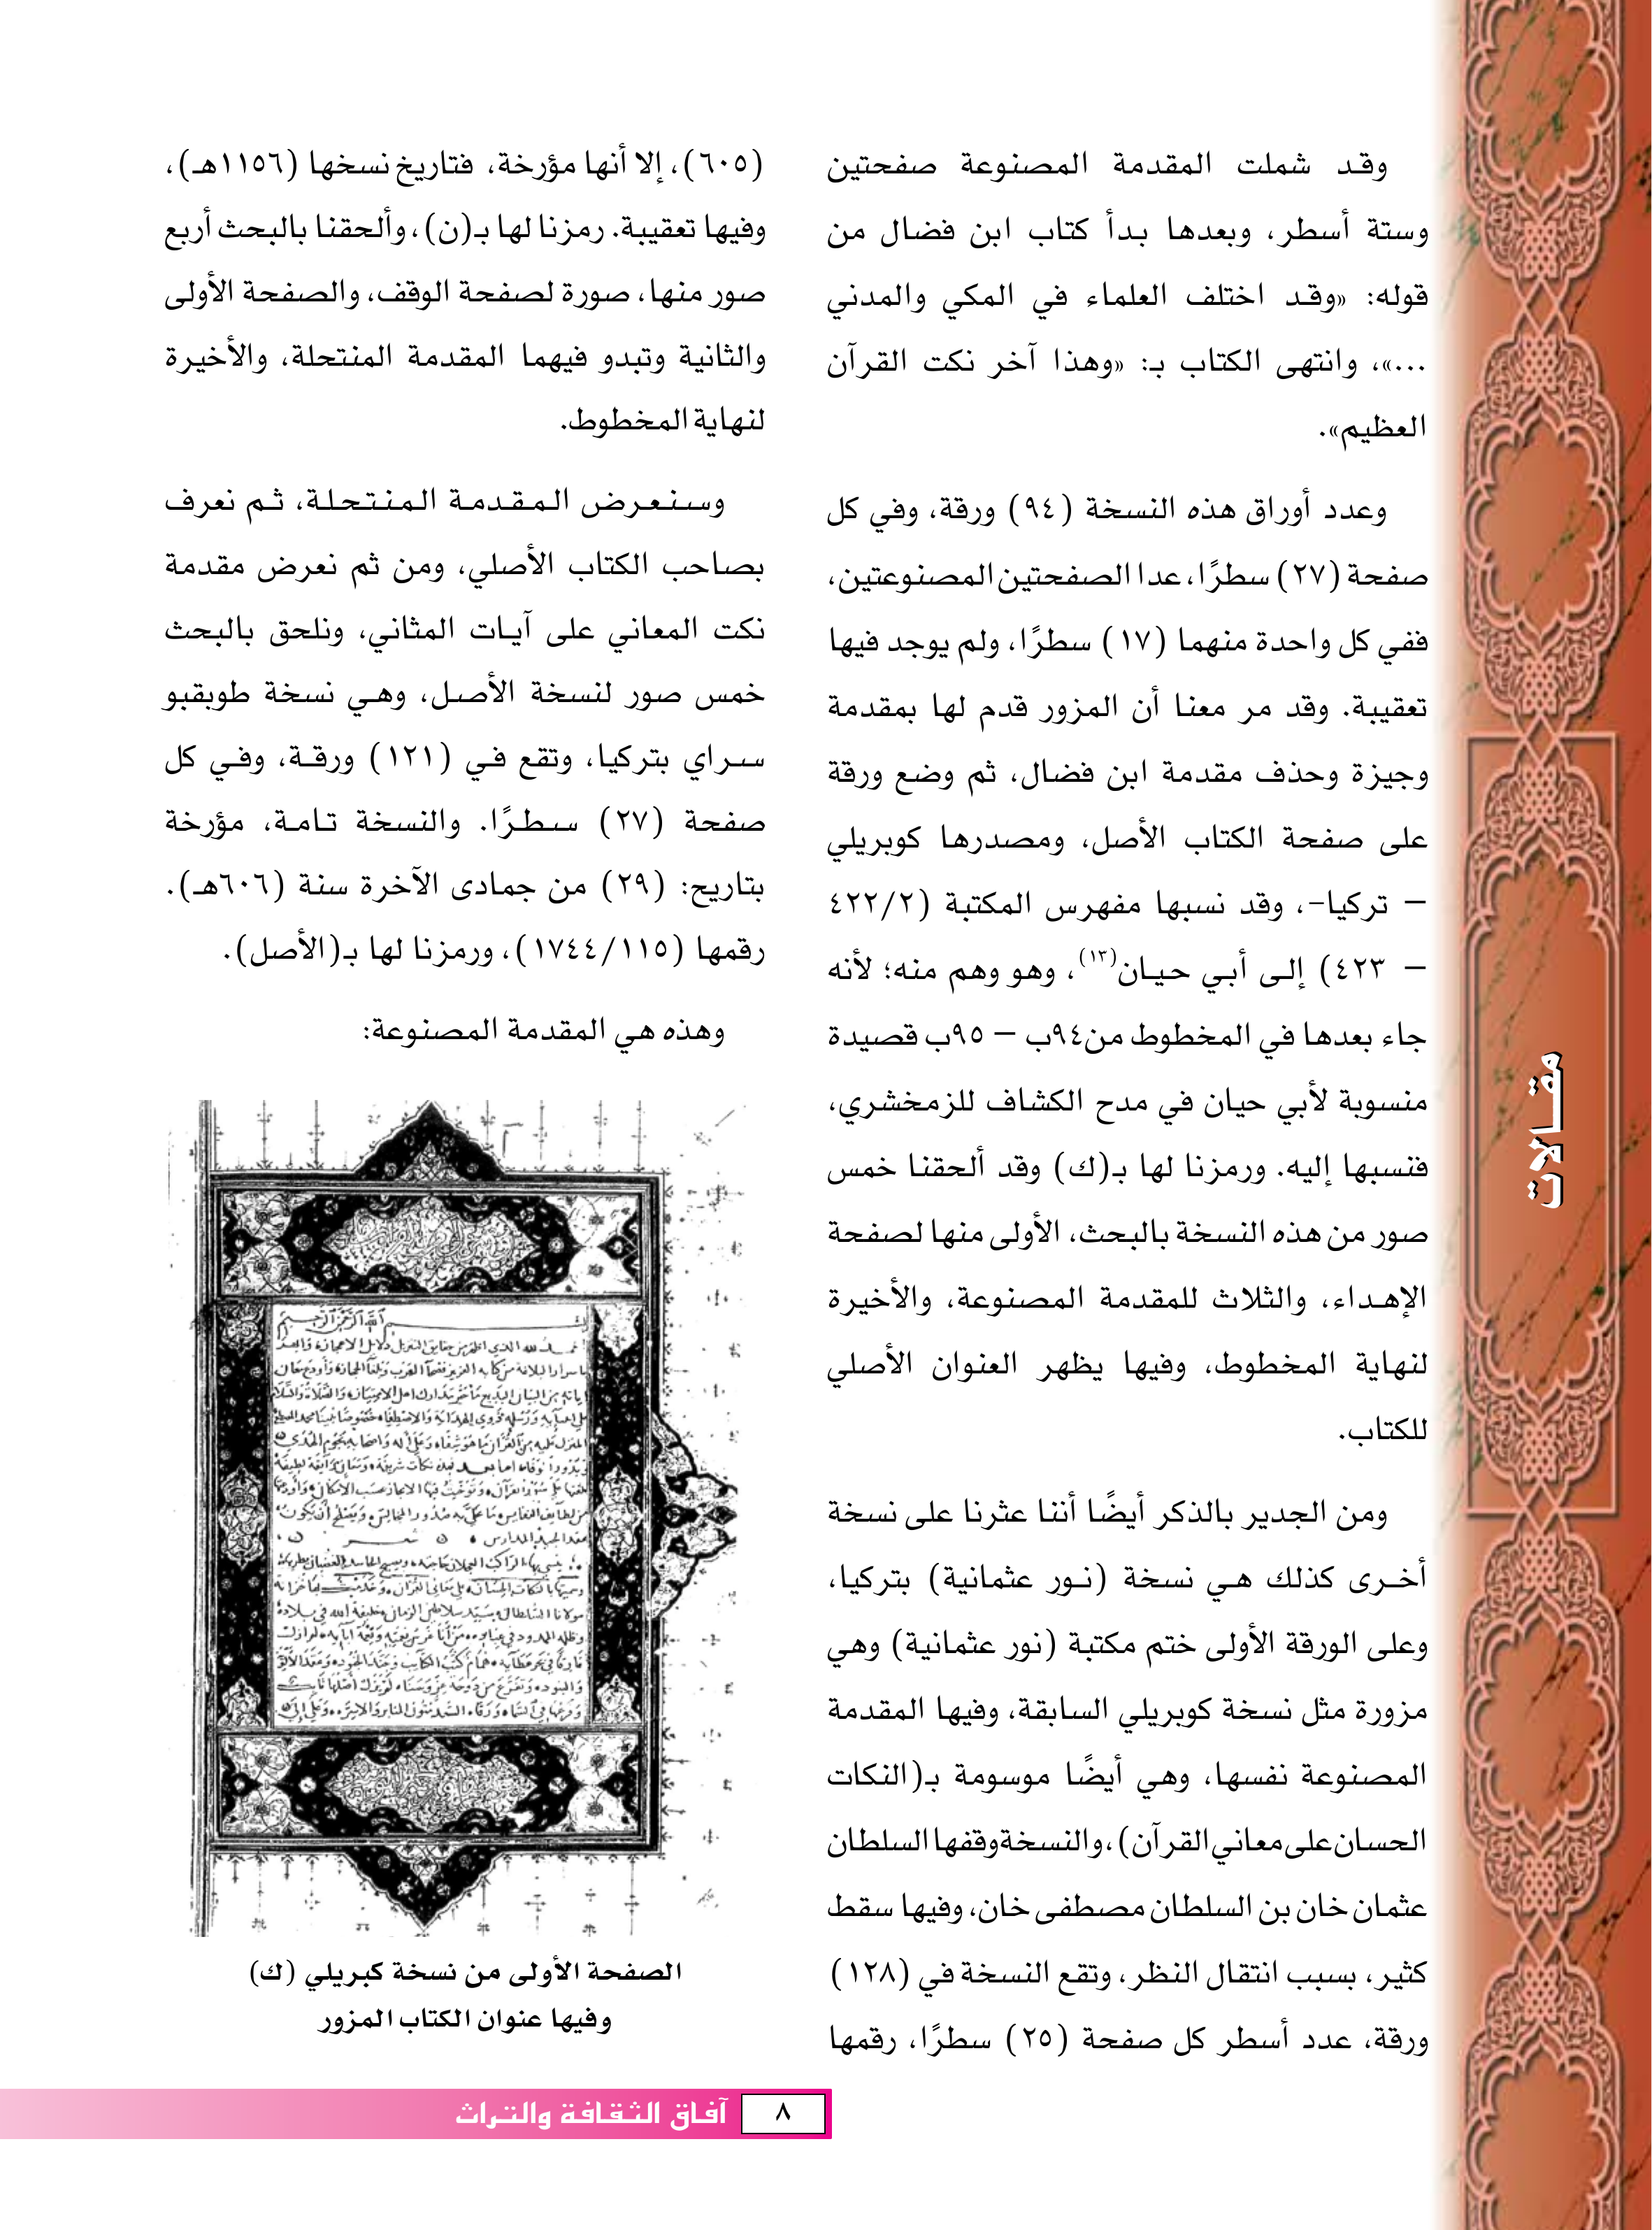 وقد شملت المقدمة المصنوعة صفحتين
وستة أسطر، وبعدها بدأ كتاب ابن فضال من
قوله: «وقد اختلف العلماء في المكي والمدني
...»، وانتهى الكتاب بـ: «وهذا آخر نكت القرآن
العظيم».
وعدد أوراق هذه النسخة (٩٤) ورقة، وفي كل
صفحة (٢٧) سطرًا، عدا الصفحتين المصنوعتين،
ففي كل واحدة منهما (١٧) سطرًا، ولم يوجد فيها
تعقيبة. وقد مر معنا أن المزور قدم لها بمقدمة
وجيزة وحذف مقدمة ابن فضال، ثم وضع ورقة
على صفحة الكتاب الأصل، ومصدرها كوبريلي
– تركيا-، وقد نسبها مفهرس المكتبة (٤٢٢/٢
– ٤٢٣) إلى أبي حيان(١٣)، وهو وهم منه؛ لأنه
جاء بعدها في المخطوط من٩٤ب – ٩٥ب قصيدة
منسوبة لأبي حيان في مدح الكشاف للزمخشري،
فنسبها إليه. ورمزنا لها بـ(ك) وقد ألحقنا خمس
صور من هذه النسخة بالبحث، الأولى منها لصفحة
الإهداء، والثلاث للمقدمة المصنوعة، والأخيرة
لنهاية المخطوط، وفيها يظهر العنوان الأصلي
للكتاب.
ومن الجدير بالذكر أيضًا أننا عثرنا على نسخة
أخرى كذلك هي نسخة (نور عثمانية) بتركيا،
وعلى الورقة الأولى ختم مكتبة (نور عثمانية) وهي
مزورة مثل نسخة كوبريلي السابقة، وفيها المقدمة
المصنوعة نفسها، وهي أيضًا موسومة بـ(النكات
الحسان على معاني القرآن)، والنسخة وقفها السلطان
عثمان خان بن السلطان مصطفى خان، وفيها سقط
كثير، بسبب انتقال النظر، وتقع النسخة في (١٢٨)
ورقة، عدد أسطر كل صفحة (٢٥) سطرًا، رقمها
(٦٠٥)، إلا أنها مؤرخة، فتاريخ نسخها (١١٥٦هـ)،
وفيها تعقيبة. رمزنا لها بـ(ن)، وألحقنا بالبحث أربع
صور منها، صورة لصفحة الوقف، والصفحة الأولى
والثانية وتبدو فيهما المقدمة المنتحلة، والأخيرة
لنهاية المخطوط.
وسنعرض المقدمة المنتحلة، ثم نعرف
بصاحب الكتاب الأصلي، ومن ثم نعرض مقدمة
نكت المعاني على آيات المثاني، ونلحق بالبحث
خمس صور لنسخة الأصل، وهي نسخة طوبقبو
سراي بتركيا، وتقع في (١٢١) ورقة، وفي كل
صفحة (٢٧) سطرًا. والنسخة تامة، مؤرخة
بتاريح: (٢٩) من جمادى الآخرة سنة (٦٠٦هـ).
رقمها (١٧٤٤/١١٥)، ورمزنا لها بـ(الأصل).
وهذه هي المقدمة المصنوعة:
الصفحة الأولى من نسخة كبريلي (ك)
وفيها عنوان الكتاب المزور
مقالات
٨
آفاق الثقافة والتراث